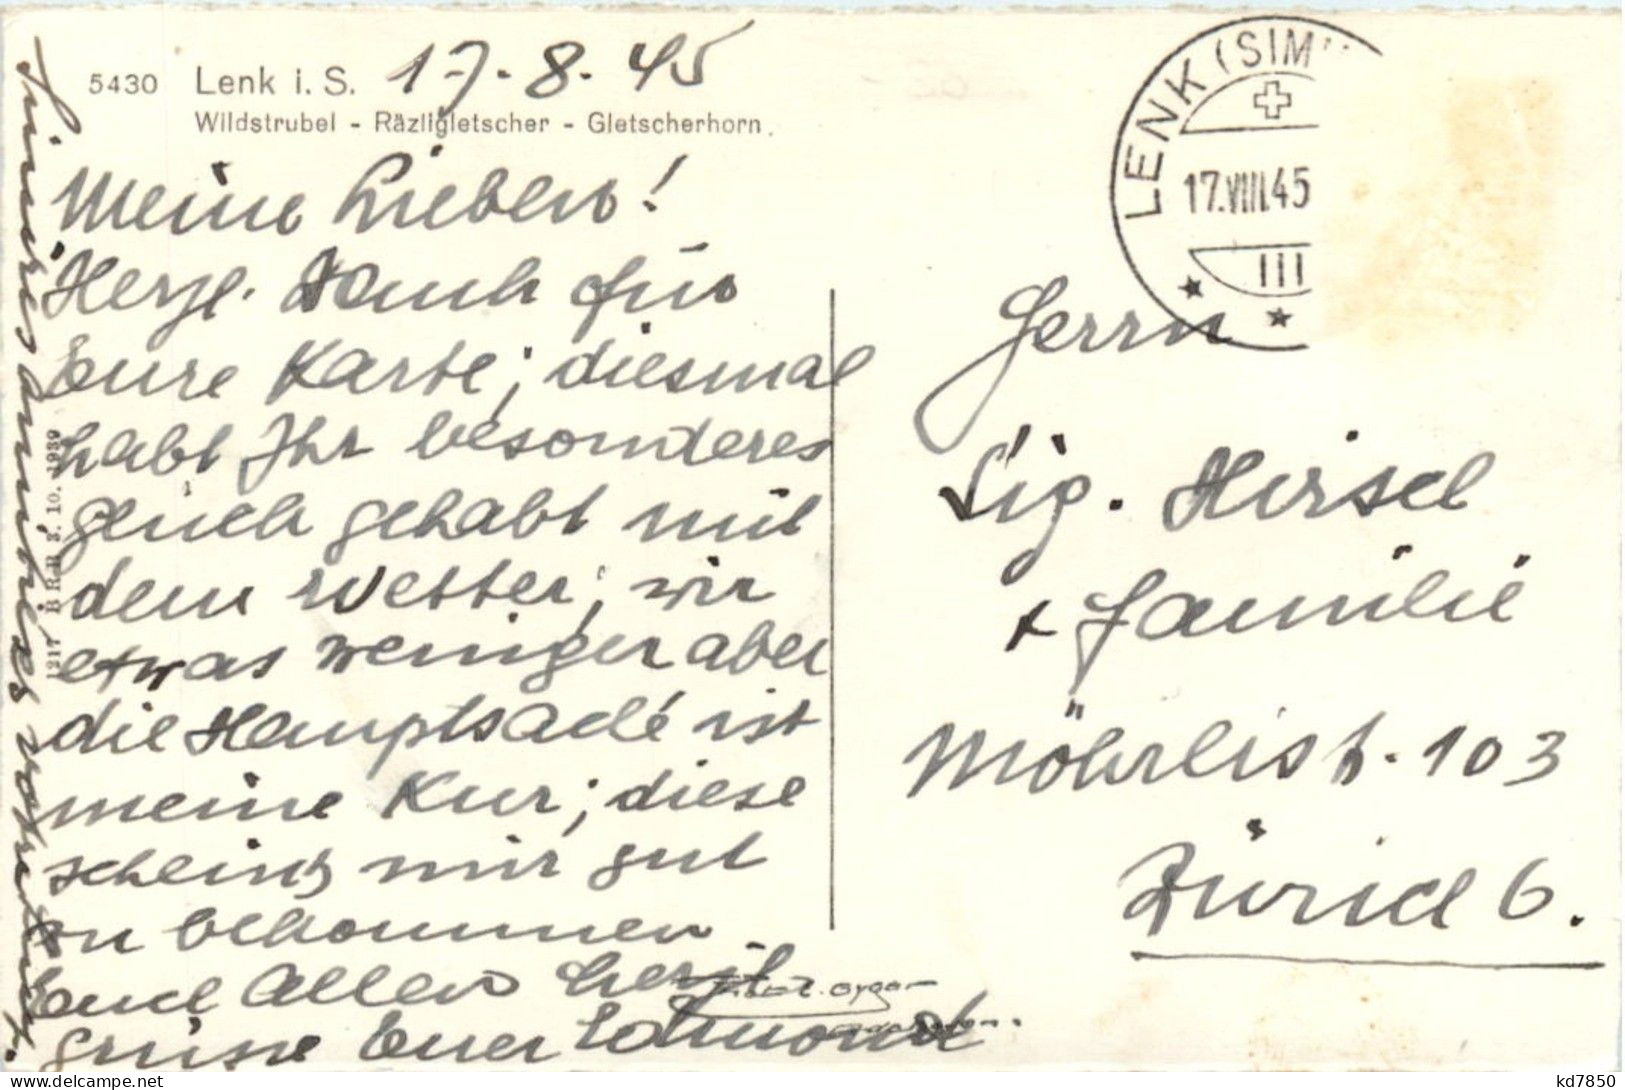 5430 Lenk i. S. 17.8.45
Wildstrubel - Räzligletscher - Gletscherhorn.
LENK (SIM
17.VIII.45
III
Meine Lieben!
Herzl. Dank für
Eure Karte; diesmal
habt Ihr besonderes
glück gehabt mit
dem Wetter; wir
etwas weniger aber
die Hauptsache ist
meine Kur; diese
scheint mir gut
zu bekommen.
Euch Allen herzl.
grüsse Euer Edmond
1217 BRB 3. 10. 1939
Herrn
Sig. Hirsch
+ Familie
Möhrlistr. 103
Zürich 6.
kd7850